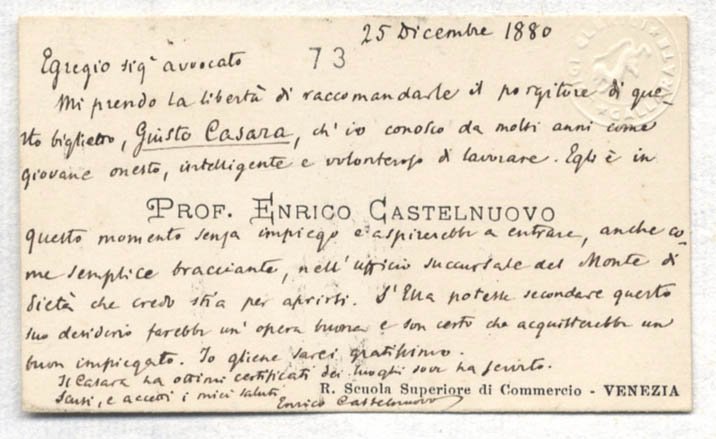 25 Dicembre 1880
73
Egregio sigr avvocato
Mi prendo la libertà di raccomandarle il porgitore di que-
sto biglietto, Giusto Casara, ch'io conosco da molti anni come
giovane onesto, intelligente e volonteroso di lavorare. Egli è in
PROF. ENRICO CASTELNUOVO
questo momento senza impiego e aspirerebbe a entrare, anche co-
me semplice bracciante, nell'ufficio succursale del Monte di
Pietà che credo stia per aprirsi. S'Ella potesse secondare questo
suo desiderio farebbe un'opera buona e son certo che acquisterebbe un
buon impiegato. Io gliene sarei gratissimo.
Il Casara ha ottimi certificati dei luoghi dove ha servito.
Scusi, e accetti i miei saluti.
Enrico Castelnuovo
R. Scuola Superiore di Commercio - VENEZIA